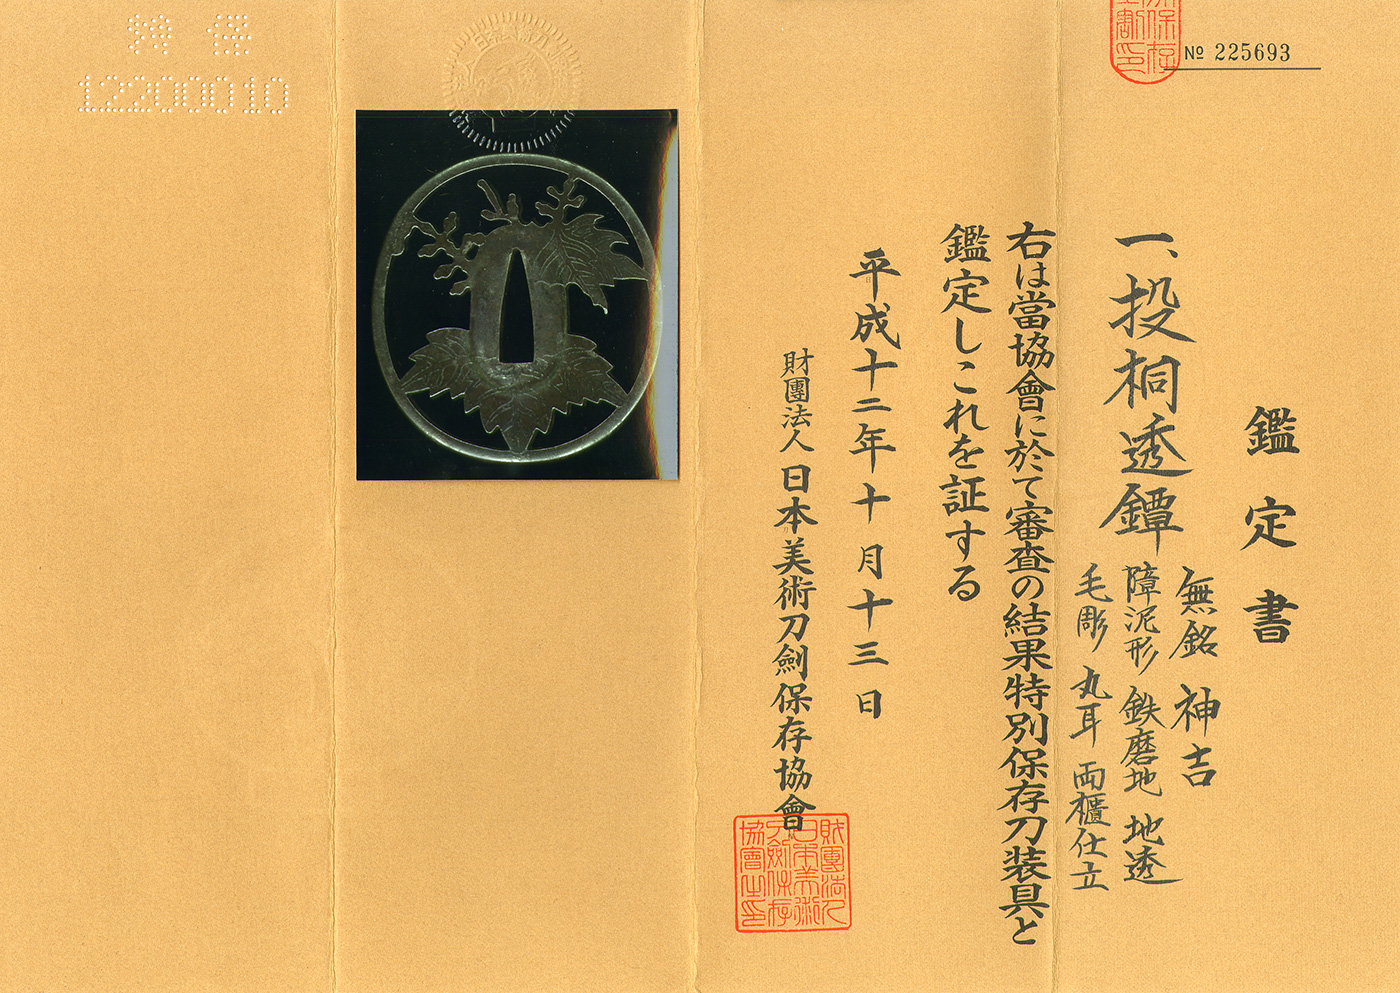 № 225693
鑑定書
一、投桐透鐔
無銘 神吉
障泥形 鉄磨地 地透
毛彫 丸耳 両櫃仕立
右は當協會に於て審査の結果特別保存刀装具と
鑑定しこれを証する
平成十二年十月十三日
財團法人日本美術刀劍保存協會
財團法人
日本美術
刀劍保存
協會之印
特保
12200010